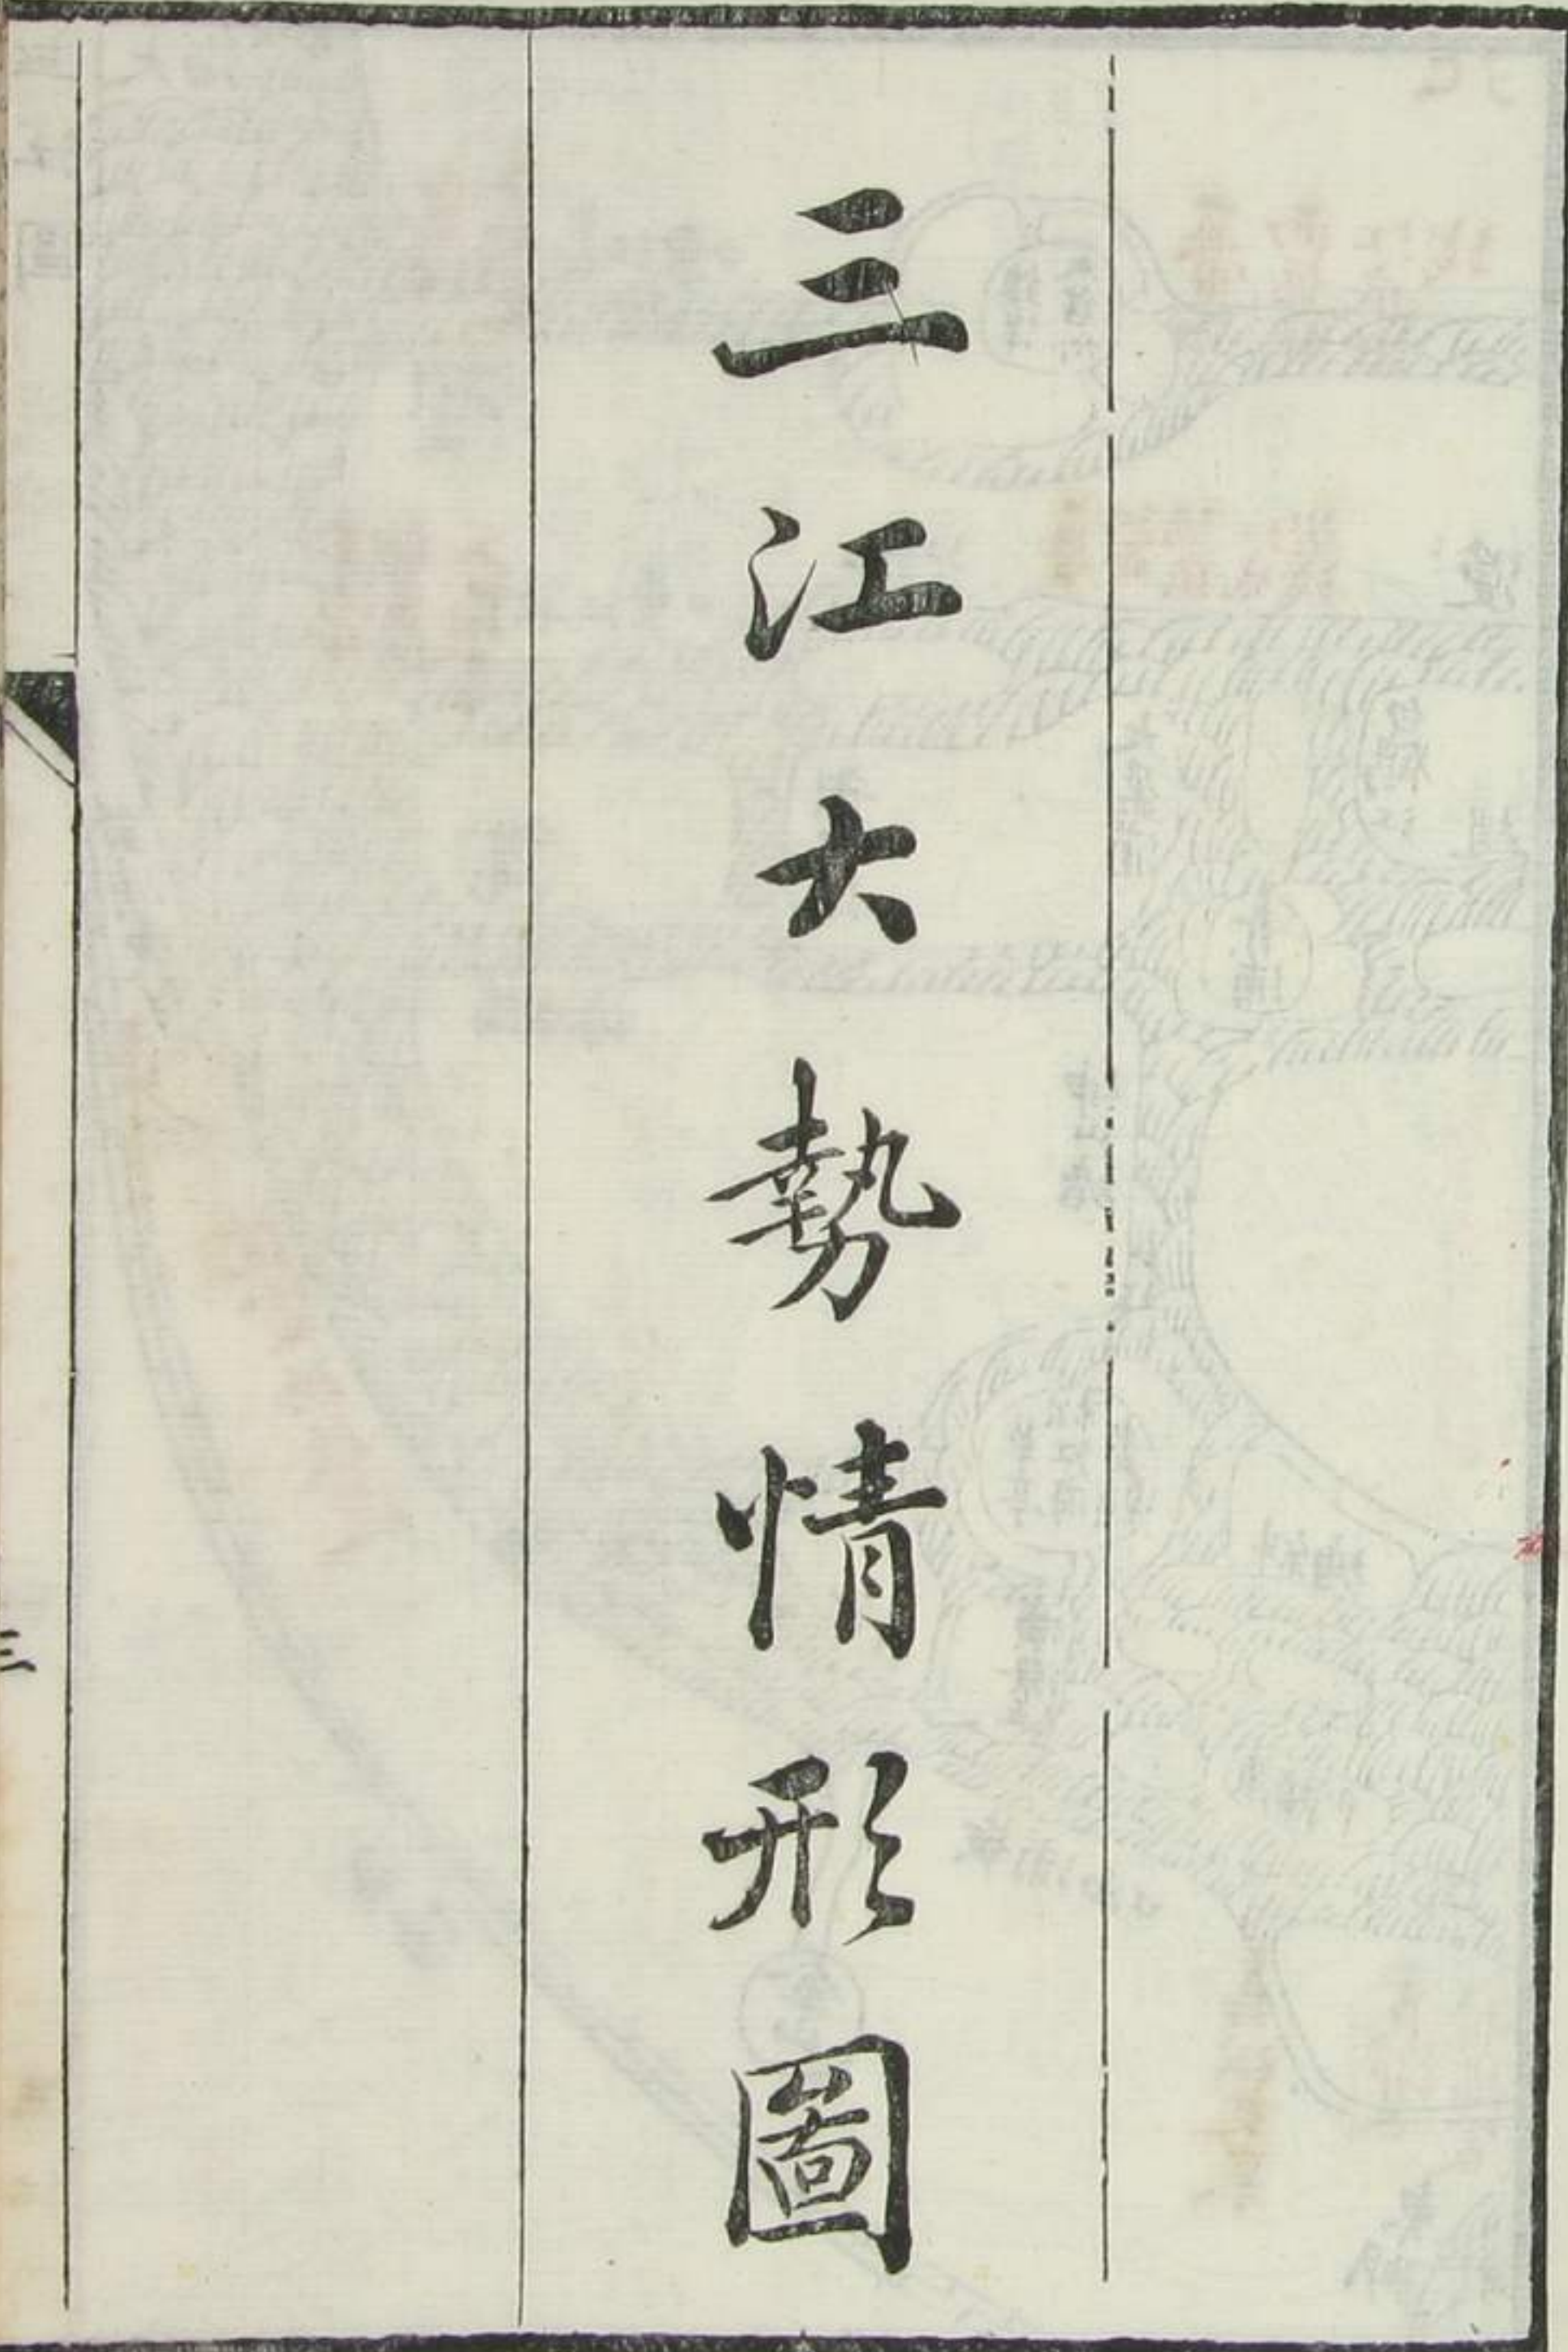 三江大勢情形圖
三